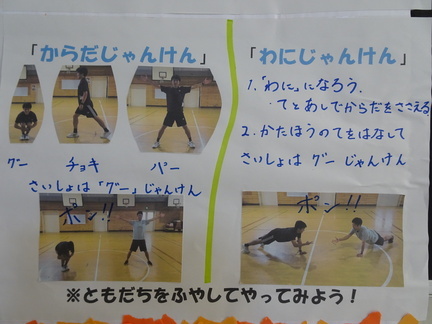 「からだじゃんけん」
グー　チョキ　パー
さいしょは「グー」じゃんけん
ポン!!
「わにじゃんけん」
1.「わに」になろう.
・てとあしでからだをささえる
2.かたほうのてをはなして
さいしょは グー じゃんけん
ポン!!
※ともだちをふやしてやってみよう！